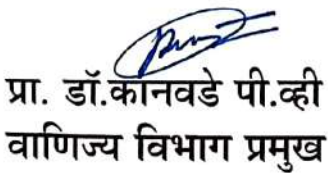 प्रा. डॉ.कानवडे पी.व्ही
वाणिज्य विभाग प्रमुख